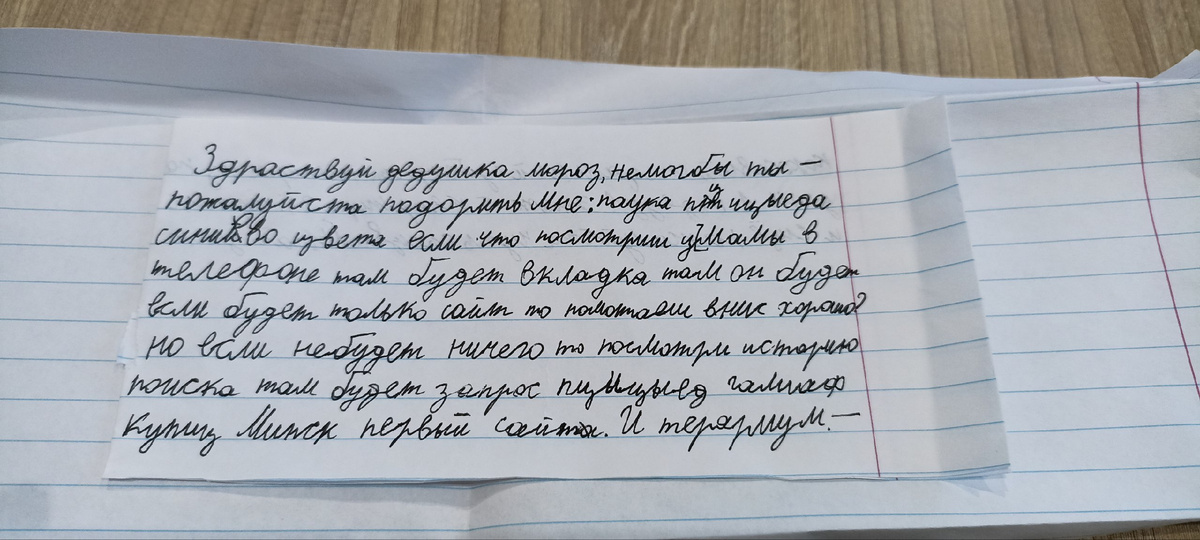 Здраствуй дедушка мороз, немогбы ты —
пожалуйста подорить мне: паука птицыеда
синиво цвета если что посмотриш у мамы в
телефоне там будет вкладка там он будет
если будет только сайт то помотаеш вниз хорошо?
но если небудет ничего то посмотри историю
поиска там будет запрос пицыцыед галиаф
Купиц Минск первый сайт. И терариум. —